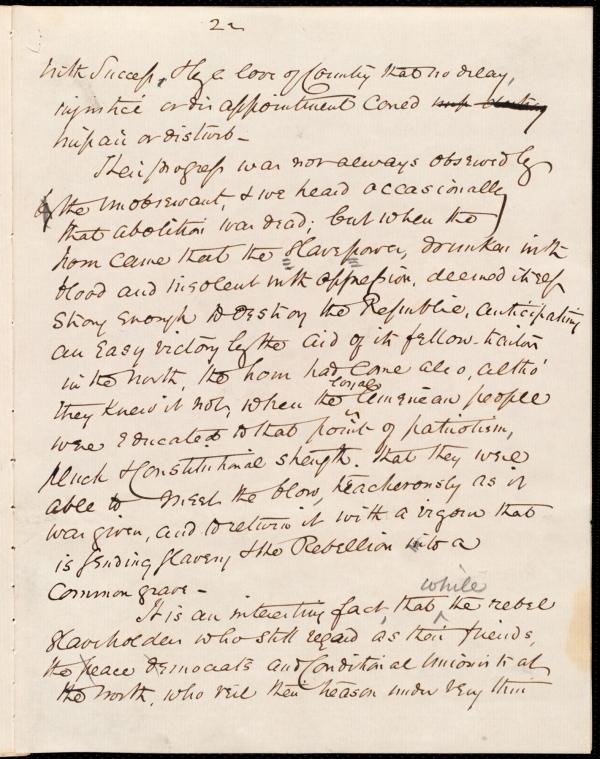 22
with Success, & by a love of Country that no delay,
injustice or disappointment could
impair or disturb -
Their progress was not always observed by
the unobservant, & we heard occasionally
that abolition was dead; but when the
hour came that the Slave power, drunken with
blood and insolent with oppression, deemed itself
Strong enough to destroy the Republic, anticipating
an Easy victory by the aid of its fellow-traitors
in the North, the hour had come also, altho'
loyal
they knew it not, when the American people
were Educated to that point of patriotism,
pluck & Constitutional strength. that they were
able to meet the blow, treacherously as it
was given, and to return it with a vigour that
is sending slavery & the Rebellion into a
Common grave -
while
It is an interesting fact, that the rebel
Slaveholders who still regard as their friends,
the peace Democrats and Conditional Unionists at
the North, who veil their treason under very thin